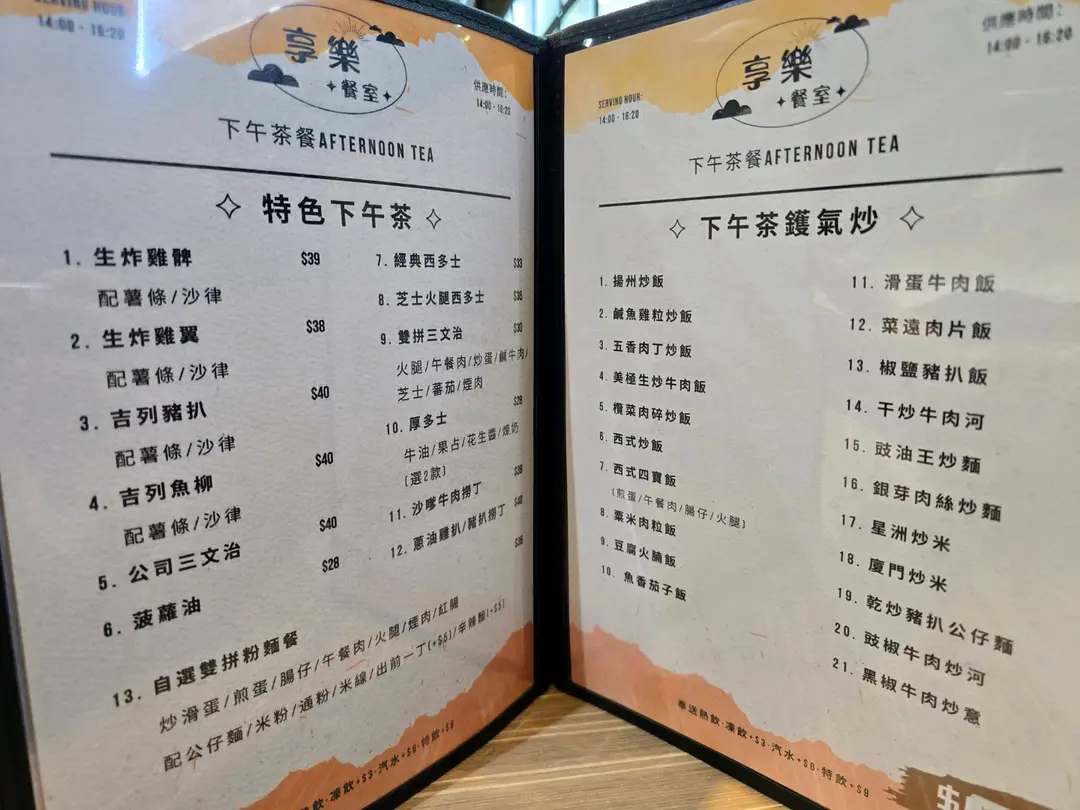 SERVING HOUR:
14:00 - 16:20
享樂
餐室
供應時間:
14:00 - 16:20
下午茶餐AFTERNOON TEA
特色下午茶
1. 生炸雞髀 $39
配薯條/沙律
2. 生炸雞翼 $38
配薯條/沙律
3. 吉列豬扒 $40
配薯條/沙律
4. 吉列魚柳 $40
配薯條/沙律
5. 公司三文治 $40
6. 菠蘿油 $28
7. 經典西多士 $33
8. 芝士火腿西多士 $36
9. 雙拼三文治 $30
火腿/午餐肉/炒蛋/鹹牛肉/
芝士/蕃茄/煙肉
10. 厚多士 $28
牛油/果占/花生醬/煉奶
(選2款)
11. 沙嗲牛肉撈丁 $39
12. 蔥油雞扒/豬扒撈丁 $40
$36
13. 自選雙拼粉麵餐
炒滑蛋/煎蛋/腸仔/午餐肉/火腿/煙肉/紅腸
配公仔麵/米粉/通粉/米線/出前一丁(+$5)/辛辣麵(+$5)
飲·凍飲+$3·汽水+$6·特飲+$9
SERVING HOUR:
14:00 - 16:20
享樂
餐室
供應時間:
14:00 - 16:20
下午茶餐AFTERNOON TEA
下午茶鑊氣炒
1. 揚州炒飯
2. 鹹魚雞粒炒飯
3. 五香肉丁炒飯
4. 美極生炒牛肉飯
5. 欖菜肉碎炒飯
6. 西式炒飯
7. 西式四寶飯
(煎蛋/午餐肉/腸仔/火腿)
8. 粟米肉粒飯
9. 豆腐火腩飯
10. 魚香茄子飯
11. 滑蛋牛肉飯
12. 菜遠肉片飯
13. 椒鹽豬扒飯
14. 干炒牛肉河
15. 豉油王炒麵
16. 銀芽肉絲炒麵
17. 星洲炒米
18. 廈門炒米
19. 乾炒豬扒公仔麵
20. 豉椒牛肉炒河
21. 黑椒牛肉炒意
奉送熱飲·凍飲+$3·汽水+$6·特飲+$9